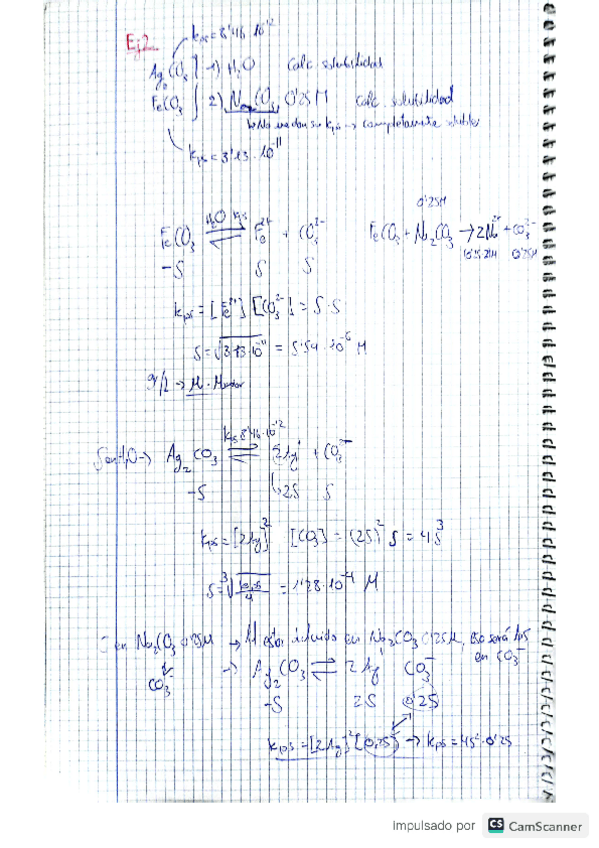 Ej2
kps = 8'46·10⁻¹²
Ag₂CO₃ 1) H₂O Calc. solubilidad
FeCO₃ 2) Na₂CO₃ 0'25M Calc. solubilidad
no dan su kps → completamente soluble
kps = 3'13·10⁻¹¹
0'25M
FeCO₃ ⇌ Fe²⁺ + CO₃²⁻ FeCO₃ + Na₂CO₃ → 2Na⁺ + CO₃²⁻
-S S S
kps = [Fe²⁺] [CO₃²⁻] = S·S
S = √3'13·10⁻¹¹ = 5'54·10⁻⁶ M
g/L → M·
kps 8'46·10⁻¹²
S en H₂O → Ag₂CO₃ ⇌ 2Ag⁺ + CO₃²⁻
-S 2S S
kps = [2Ag]² [CO₃] = (2S)² S = 4S³
S = ∛kps/4 = 1'28·10⁻⁴ M
S en Na₂CO₃ 0'25M → Al estar en Na₂CO₃ 0'25M, eso será
en CO₃⁻
CO₃⁻ → Ag₂CO₃ ⇌ 2Ag⁺ CO₃⁻
-S 2S 0'25
kps = [2Ag]² [0,25] → kps = 4S²·0'25
Impulsado por CS CamScanner